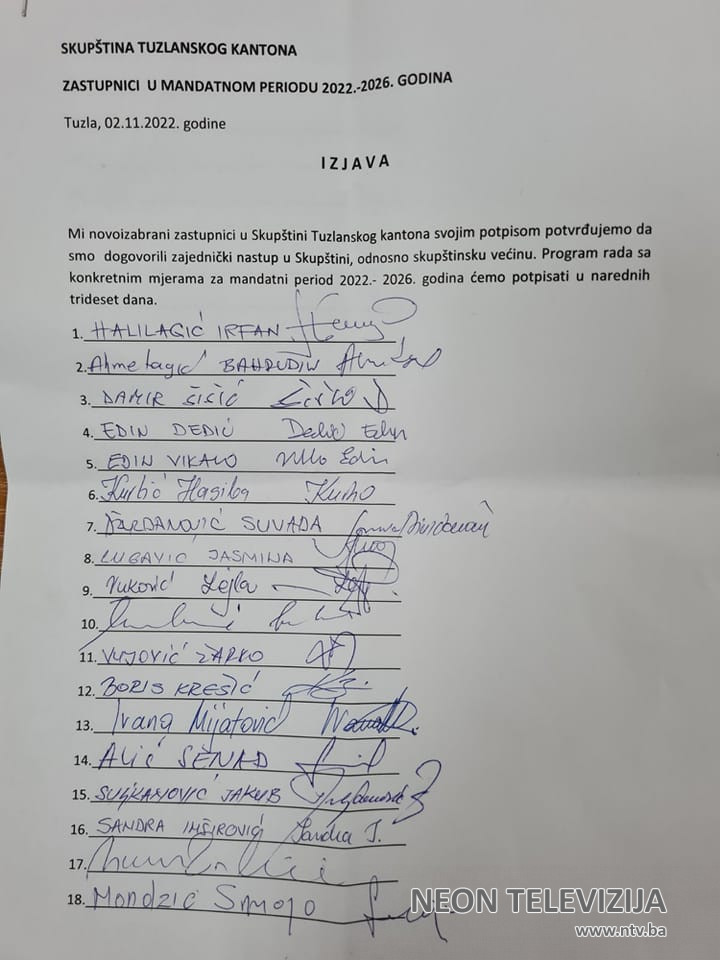 SKUPŠTINA TUZLANSKOG KANTONA
ZASTUPNICI U MANDATNOM PERIODU 2022.-2026. GODINA
Tuzla, 02.11.2022. godine
IZJAVA
Mi novoizabrani zastupnici u Skupštini Tuzlanskog kantona svojim potpisom potvrđujemo da
smo dogovorili zajednički nastup u Skupštini, odnosno skupštinsku većinu. Program rada sa
konkretnim mjerama za mandatni period 2022.- 2026. godina ćemo potpisati u narednih
trideset dana.
1. HALILAGIĆ IRFAN
2. Ahmetagić BAHRUDIN
3. DAMIR ŠIŠIĆ
4. EDIN DEDIĆ Dedić Edin
5. EDIN VIKALO Edin
6. Kurbić Hasiba
7. SUVADA
8. LUGAVIĆ JASMINA
9. Vuković Lejla
10.
11. VUJOVIĆ ŽARKO
12. BORIS KREŠIĆ
13. Ivana Mijatović
14. ALIĆ SENAD
15. SULJKANOVIĆ JAKUB
16. SANDRA IMŠIROVIĆ Sandra I.
17.
18. Mondzić Smajo
NEON TELEVIZIJA
www.ntv.ba